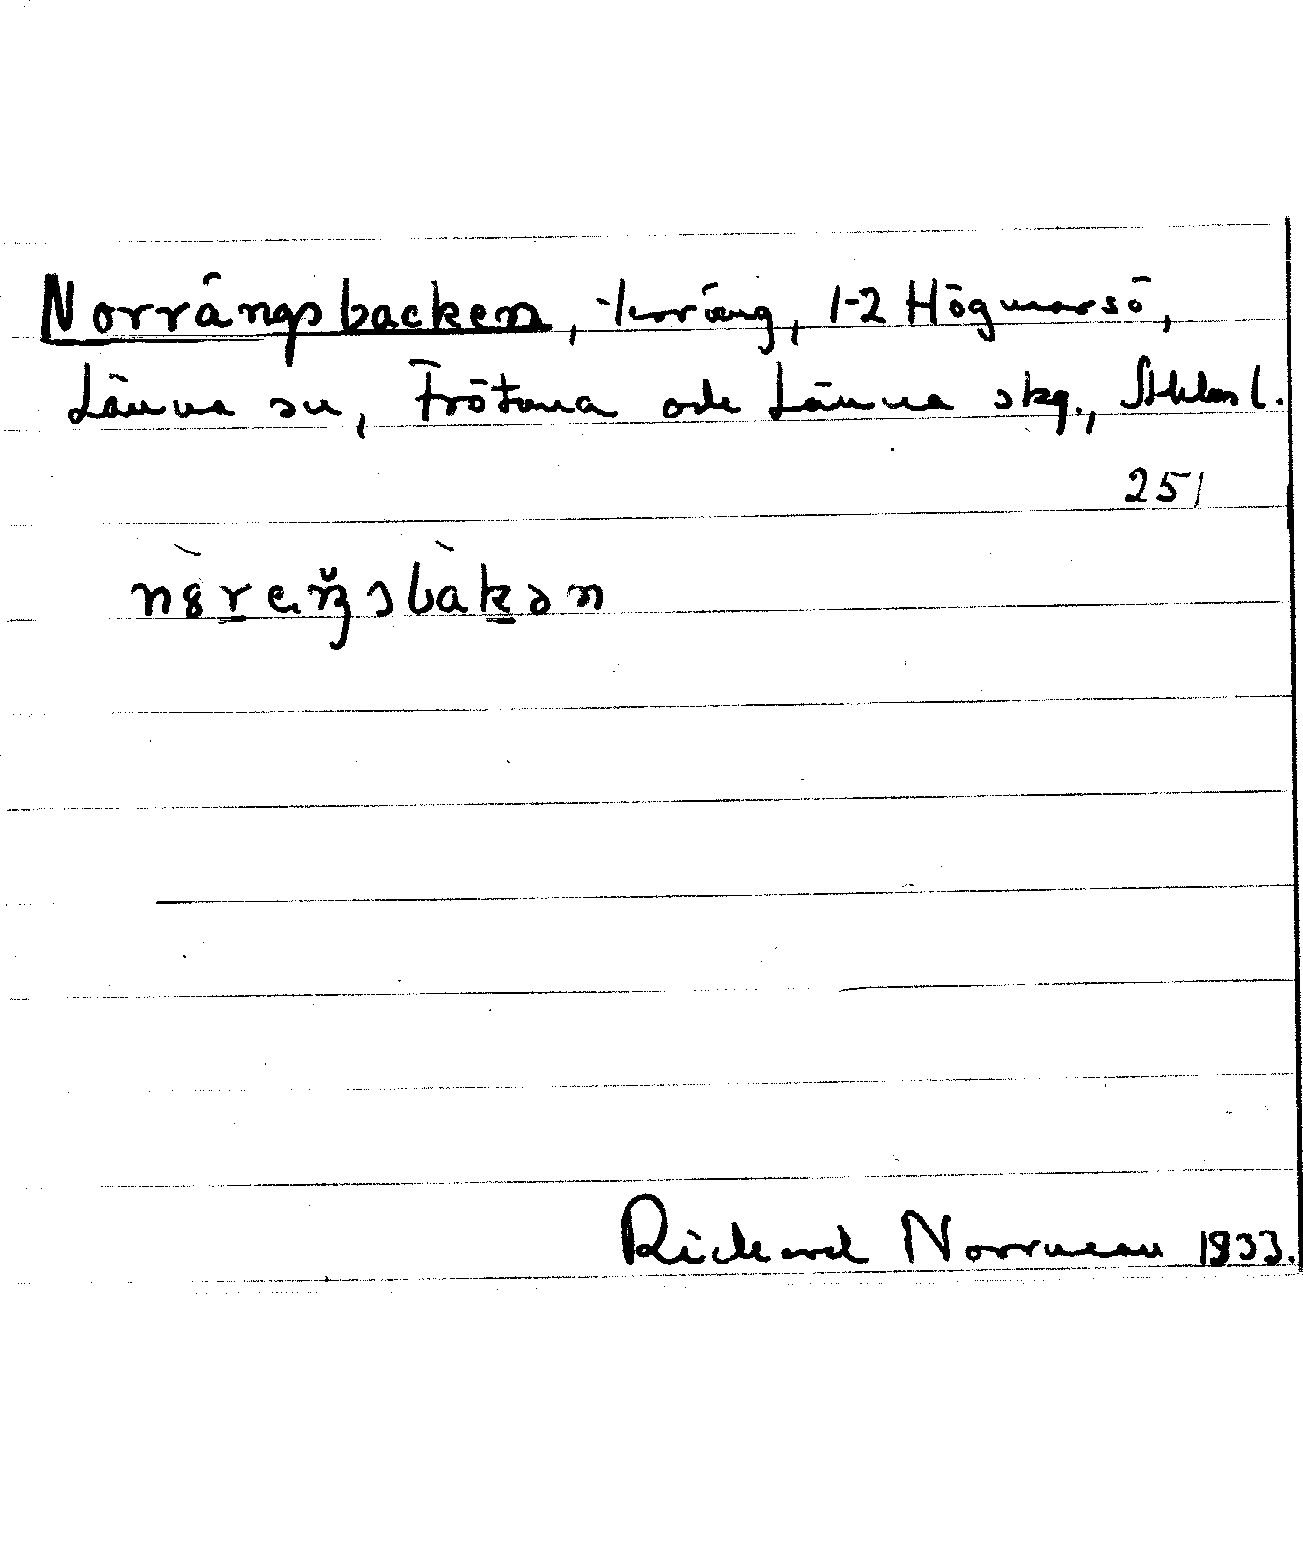 Norrängsbacken, terräng, 1-2 Högmarsö,
Länna sn, Frötuna och Länna skg., Sthlms l.
251
Rickard Norrman 1933.